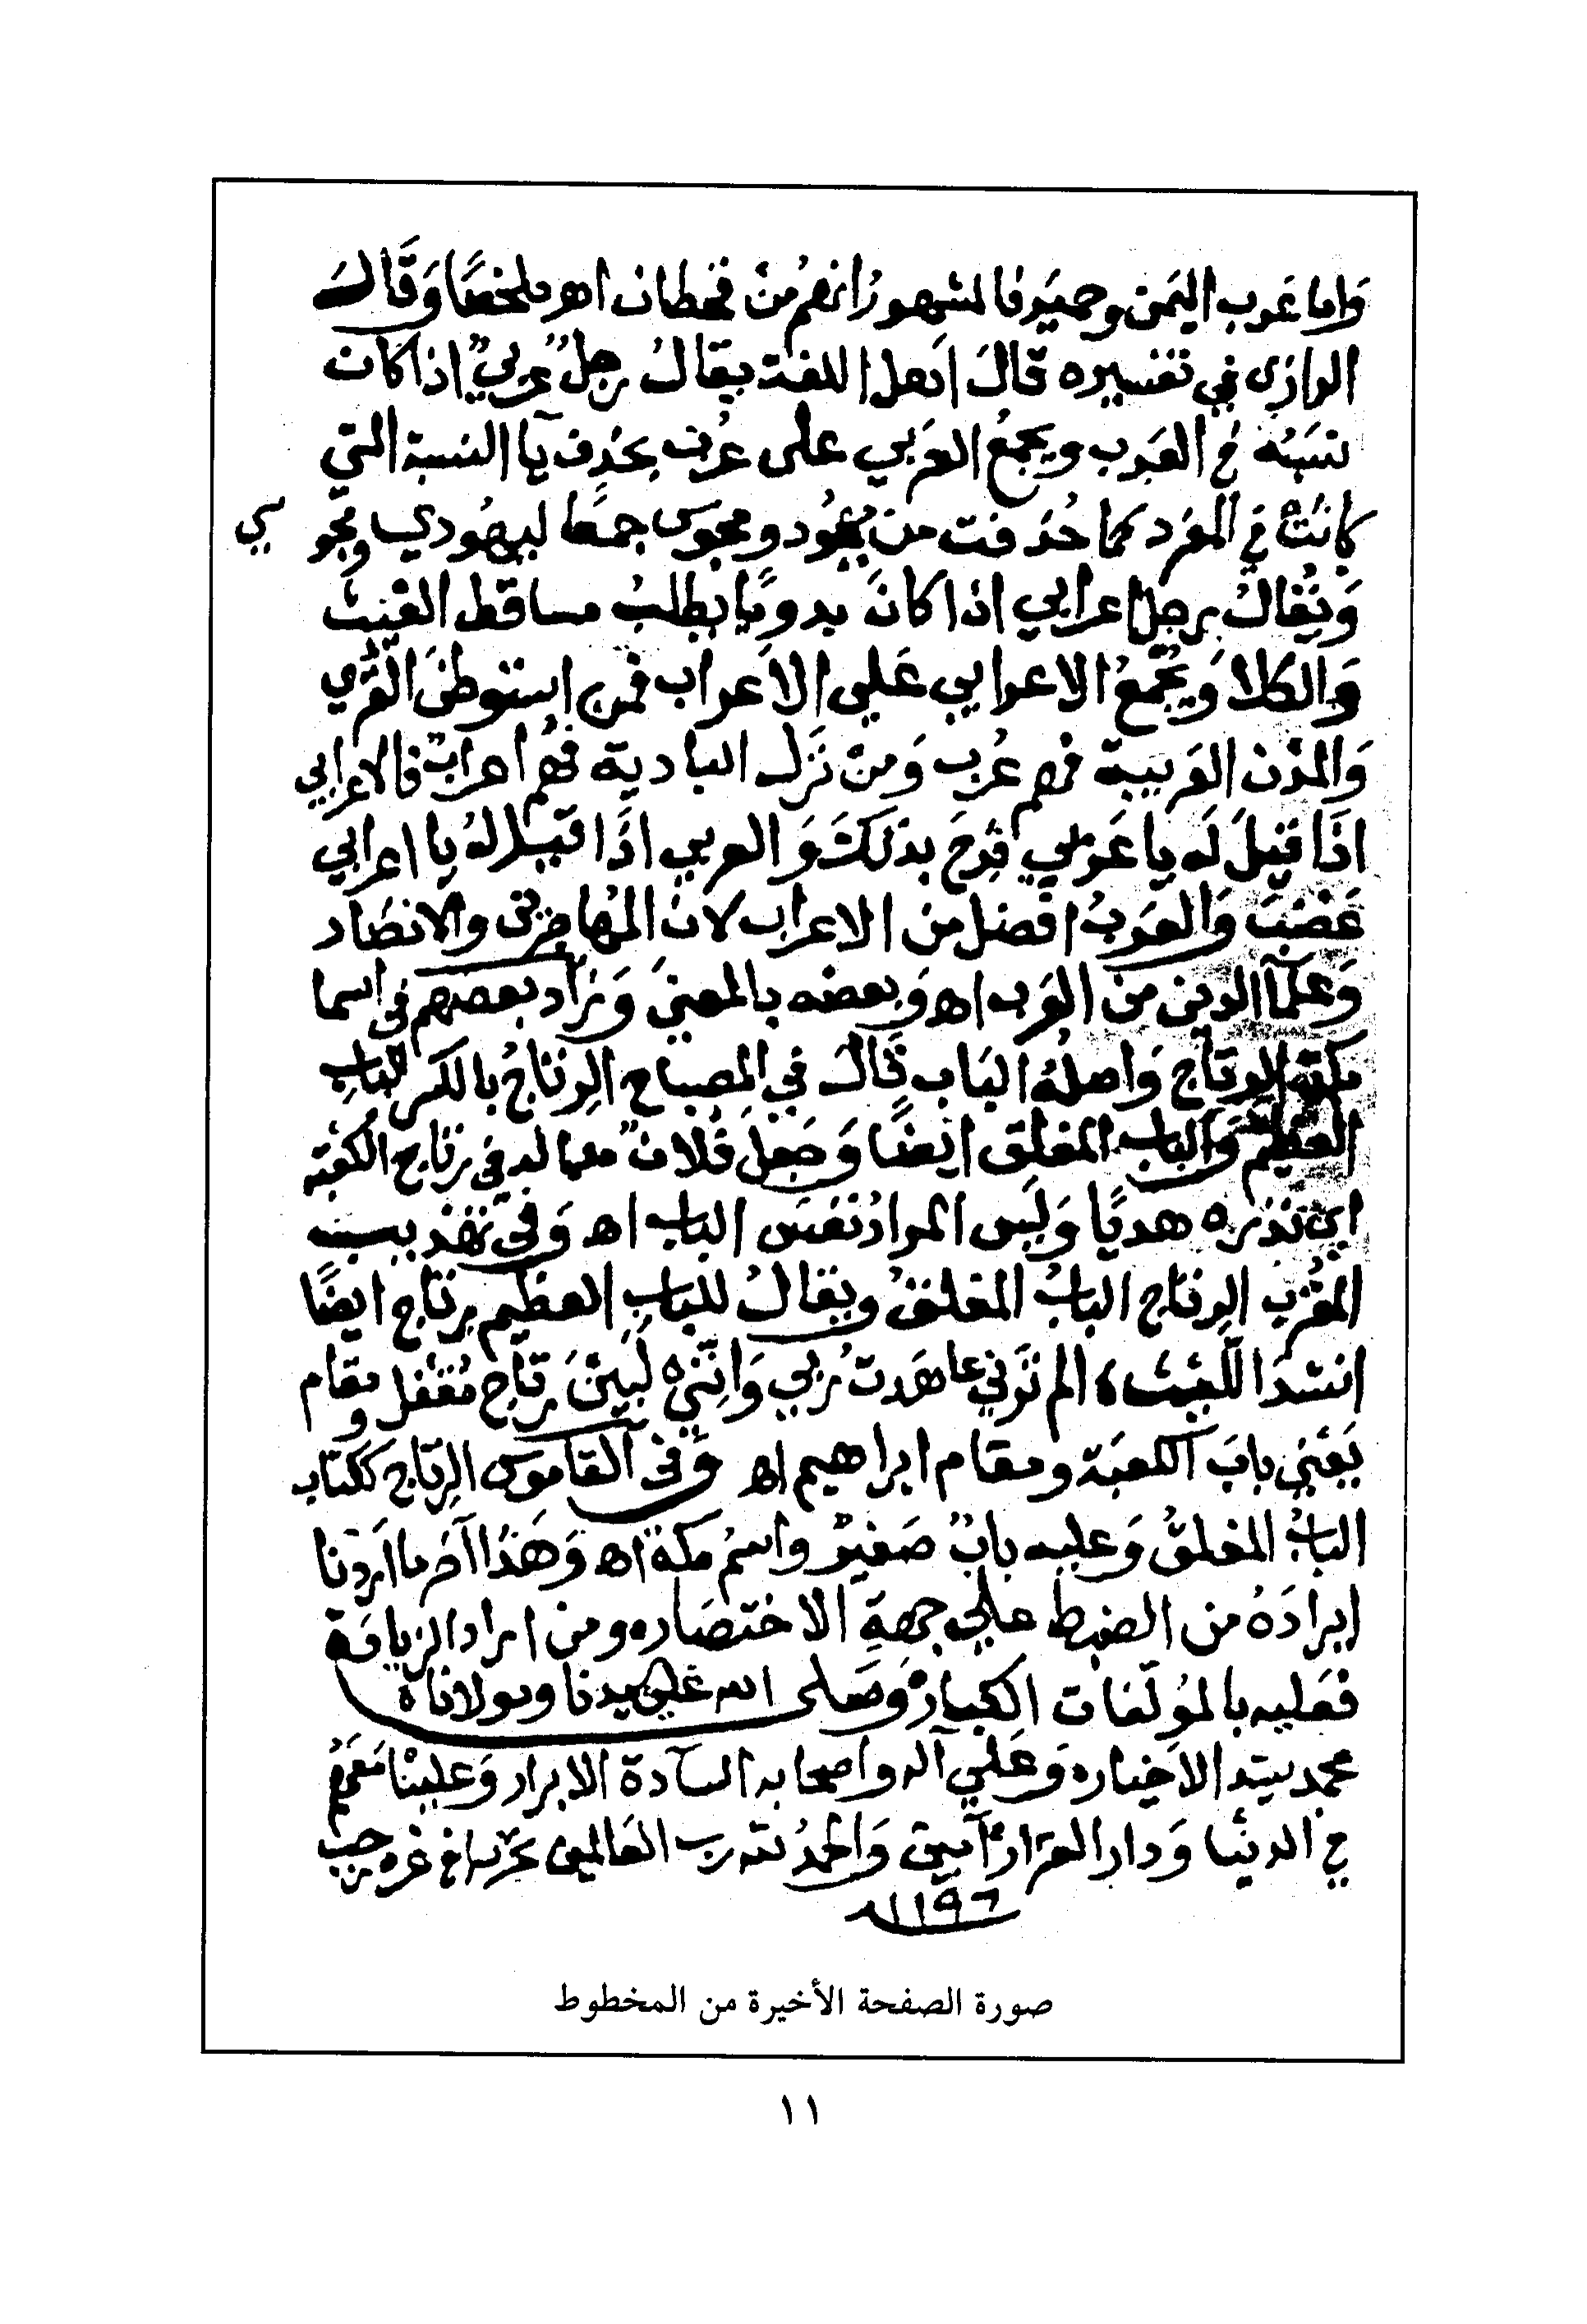 وَاما عَرب اليَمن وحميَر فالمشهورُ انهُم منْ قحطان اهـ ملخصًا وَقَالَ
الرازي في تفسيره قالَ اَهل اللغة يقالُ رجلٌ عربيٌ اذا كان
نسَبُه في العَرب ويجمعُ العَربي على عُرب بحَذف يآ النسبة التي
كانَتْ في المفرد كما حُذفت من يهُود ومجوس جمعًا ليهُودي ومجوسي
وَيُقالُ رجلٌ اعرابي اذا كانَ بدويًا يطلبُ مساقط الغيث
وَالكلا وَيُجمعُ الاعرابي عَلي الاَعراب فمن استوطنَ القُري
وَالمدْن العَربية فهم عُرب وَمنْ نَزل البادية فهُم اعرابٌ فالاعرابي
اذَا قيلَ لَه يا عَربي فرحَ بذلكَ وَ العربي اذَا قيل لهُ يا اعرابي
غَضبَ وَالعَربُ افضل من الاعراب لانَ المُهاجرين والانصَار
وَعلمآ الدين من العَرب اهـ وَبعضه بالمعنيَ وَزاد بعضهم في اسما
مكة الرتاج وَاصلهُ البَاب قَالَ في المصباح الرِتاجُ بالكسر البابِ
العَظيم وَالباب المغلق ايضًا وَجَعلَ فُلانٌ ماله في رتاج الكَعبة
اي نذره هديًا وَليس المرادُ نفسَ الباب اهـ وَفي تهذيب
المغْرب الرِتاج البابُ المغلقُ ويقالُ للبابِ العظيم رتاج ايضًا
انشدَ اللَّيث، الم تَرَني عاهَدتُ رَبي وَانني لَبَيْنَ رتاج مُقفَل ومقام
يَعْني بابَ الكعبَة ومقام ابراهيم اهـ وَفي القاموس الرتاج ككتاب
البابُ المغلقُ وَعليه بابٌ صَغيرٌ واسمُ مكة اهـ وَهَذا آخر ما اردنا
ايرادَهُ من الضبط علي جهةِ الاختصَاره ومن اراد الزيادة
فعَليه بالمؤلفات الكبارْ وَصَلى الله عَلي سيدنا ومولانا
محمد سيد الاخيارهْ وَعَلي آله واصحابه السآدة الابرار وَعلينا مَعهُم
في الدنيا وَدار القرار آمين وَالحمدُ لله رب العَالمين تحريرا في غره رجب
١١٩٦
صورة الصفحة الأخيرة من المخطوط
١١